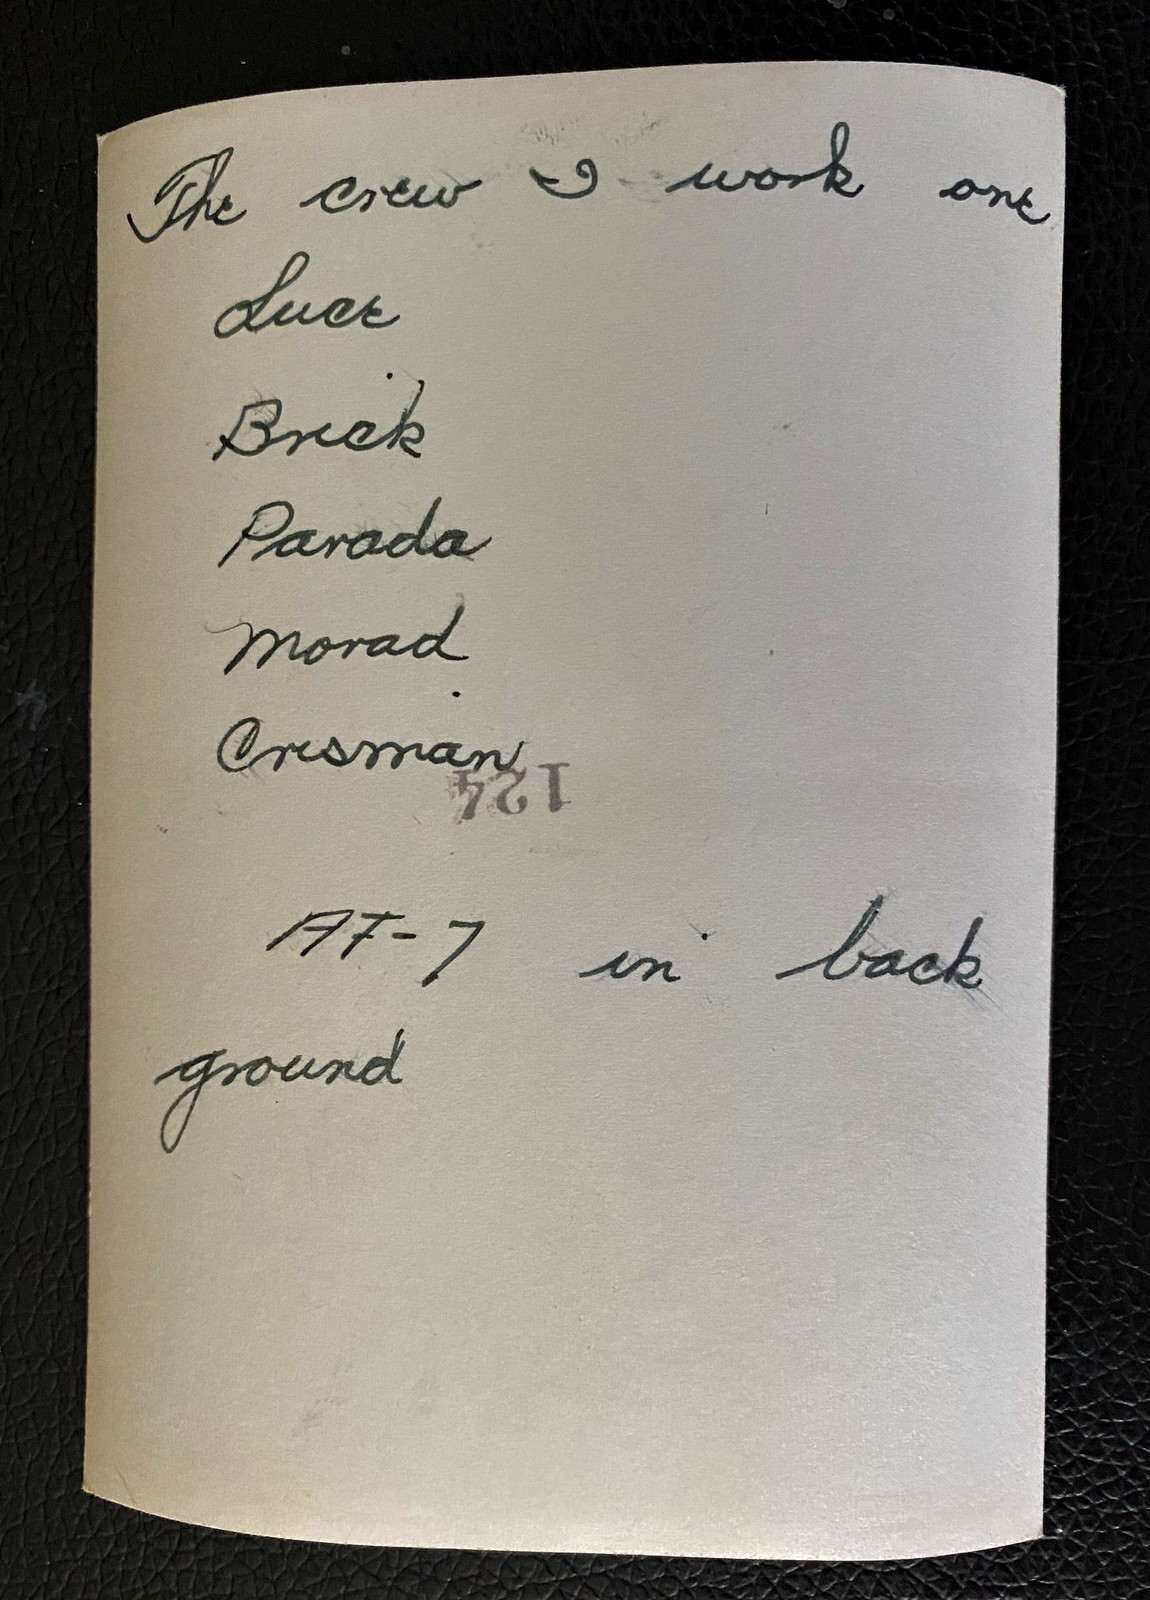 The crew I work one
Luce
Brick
Parada
Morad
Crisman
124
AF-7 in back
ground